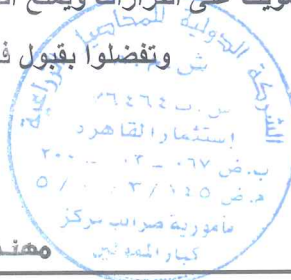 على القرارات
وتفضلوا بقبول
الشركة الدولية للمحاصيل الزراعية
ش.م.م
س.ت ٤٦٤
استثمار القاهرة
ب.ض ٠٦٧ - ٠٣ - ٢٠٠
م.ض ١٤٥ / ٣ / ٠ / ٥
مأمورية ضرائب مركز
كبار الممولين
مهند